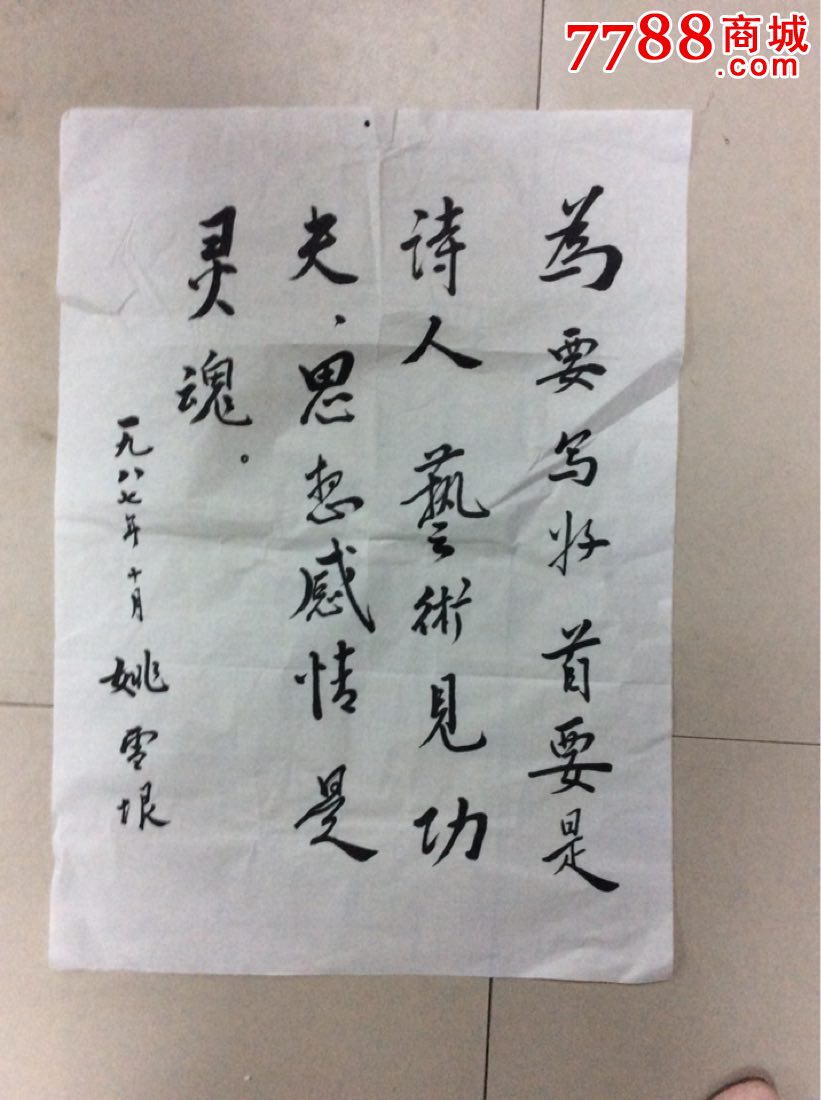 7788商城
.com
为要写好首要是
诗人 藝術見功
夫、思想感情是
灵魂。
一九八七年十月 姚雪垠